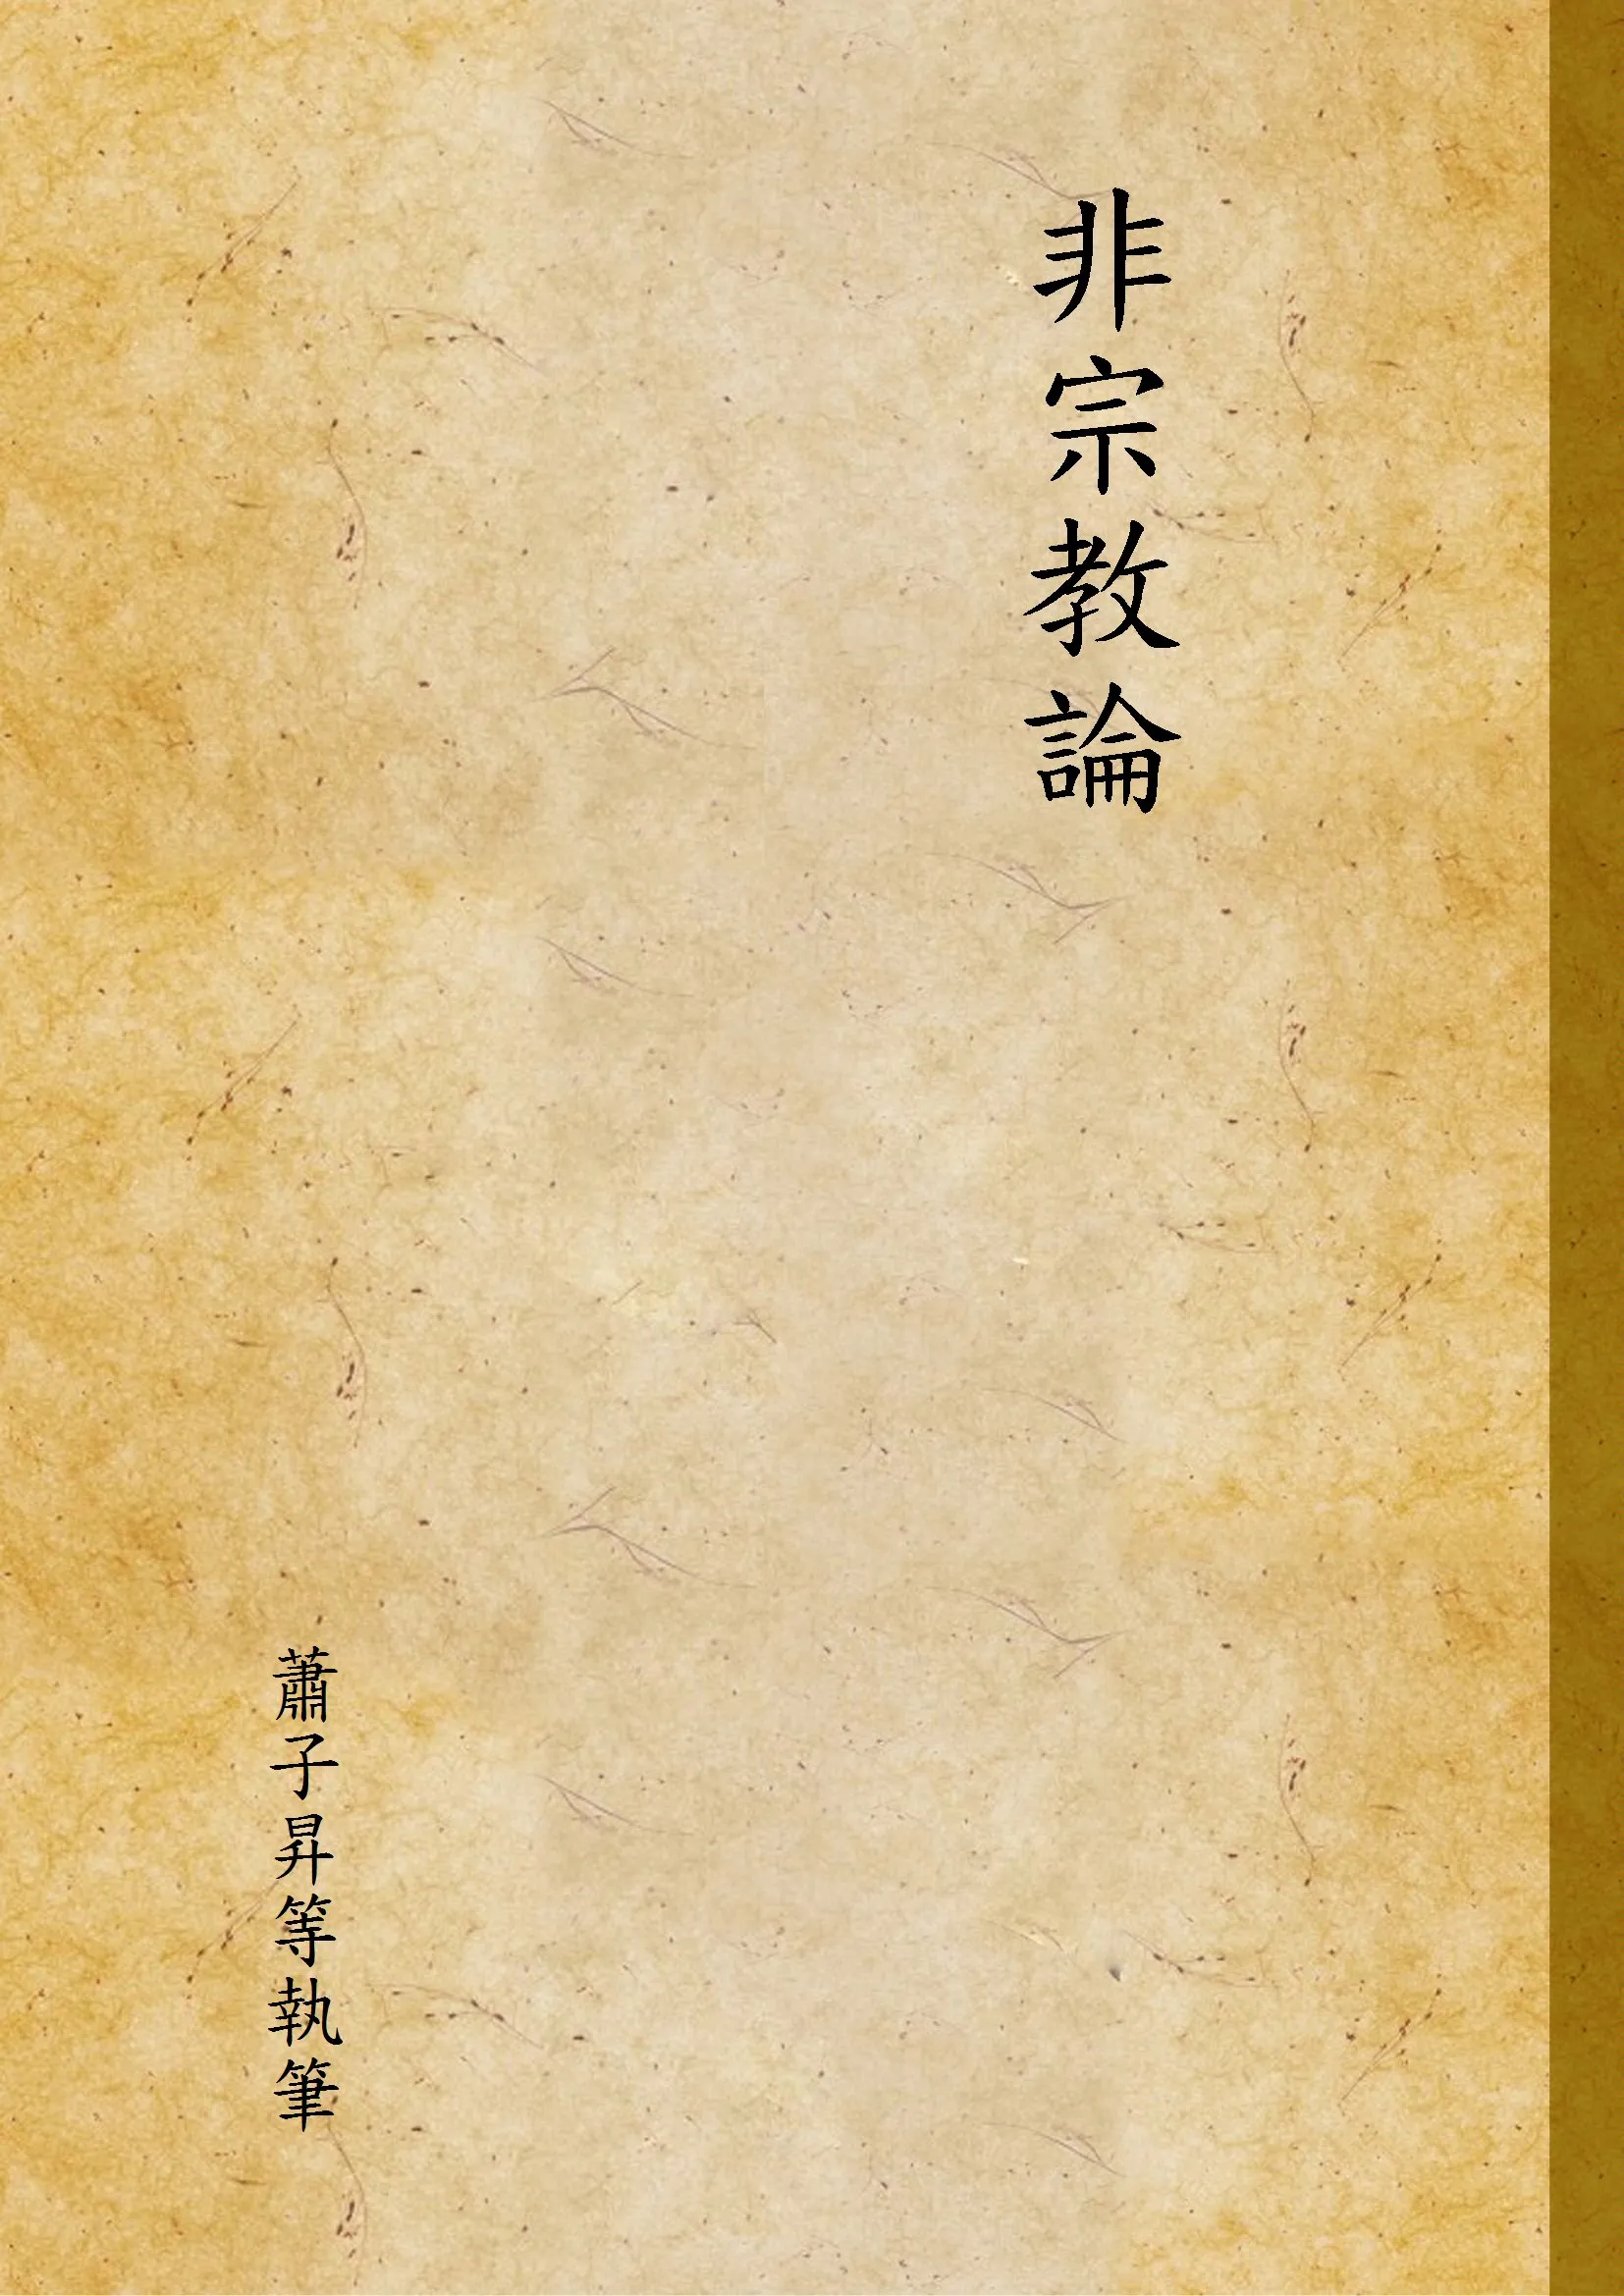 非宗教論
蕭子昇等執筆